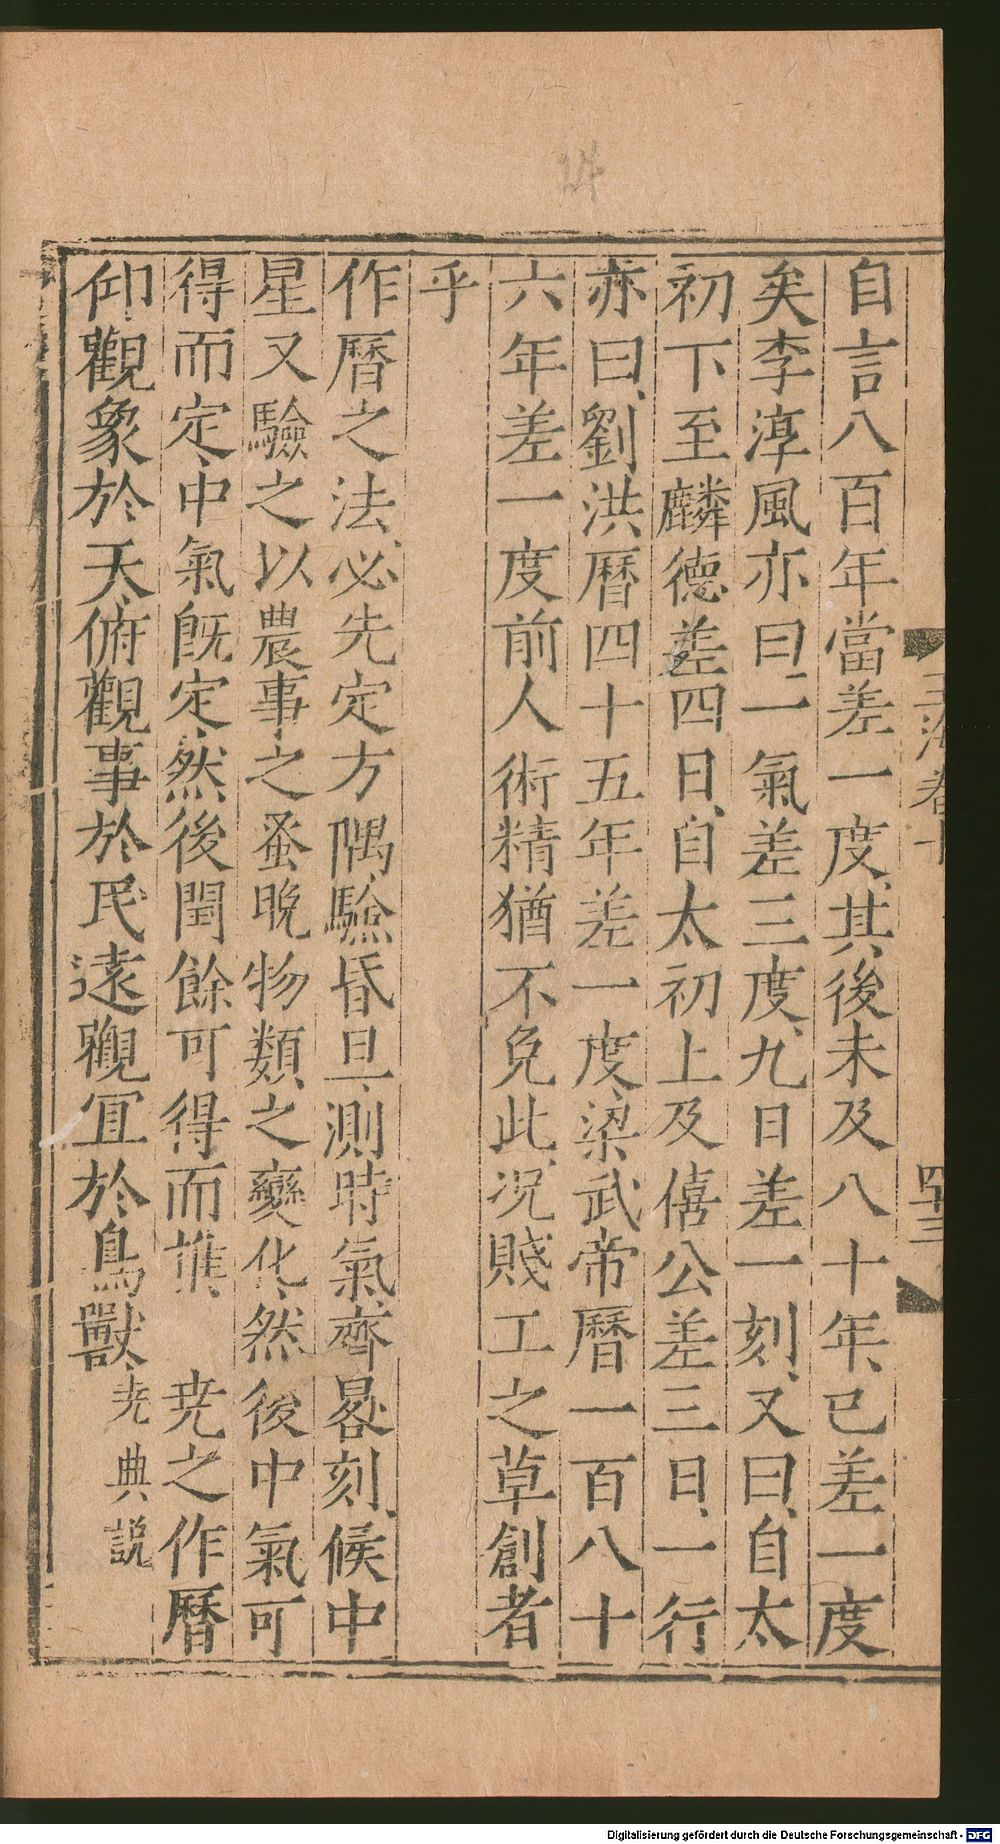 自言八百年當差一度其後未及八十年已差一度
矣李淳風亦曰一氣差三度九日差一刻又曰自太
初下至麟德差四日自太初上及僖公差三日一行
亦曰劉洪曆四十五年差一度梁武帝曆一百八十
六年差一度前人術精猶不免此況賤工之草創者
乎
作曆之法必先定方隅驗昏旦測時氣齊晷刻候中
星又驗之以農事之蚤晚物類之變化然後中氣可
得而定中氣既定然後閏餘可得而推 尭之作曆
仰觀象於天俯觀事於民遠觀宜於鳥獸尭典説
玉海卷十
四十三
Digitalisierung gefördert durch die Deutsche Forschungsgemeinschaft - DFG